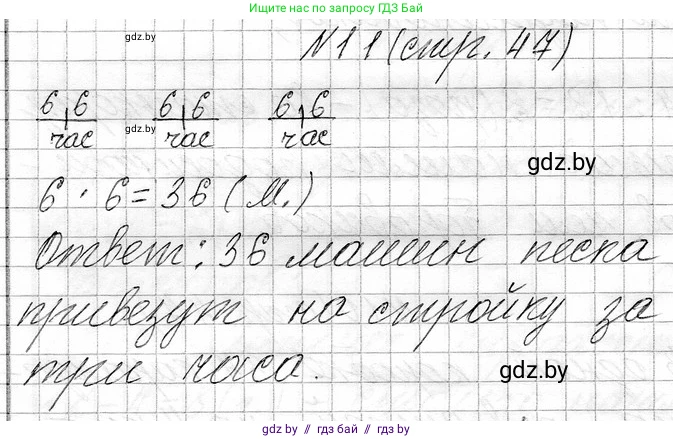 Ищите нас по названию GDZ.BY
gdz.by
N11(стр. 47)
6 6 6 6 6 6
gdz.by
час час час
gdz.by
6 · 6 = 36 (м.)
Ответ: 36 машин песка
привезут на стройку за
три часа.
gdz.by
gdz by // гдз бай // gdz.by